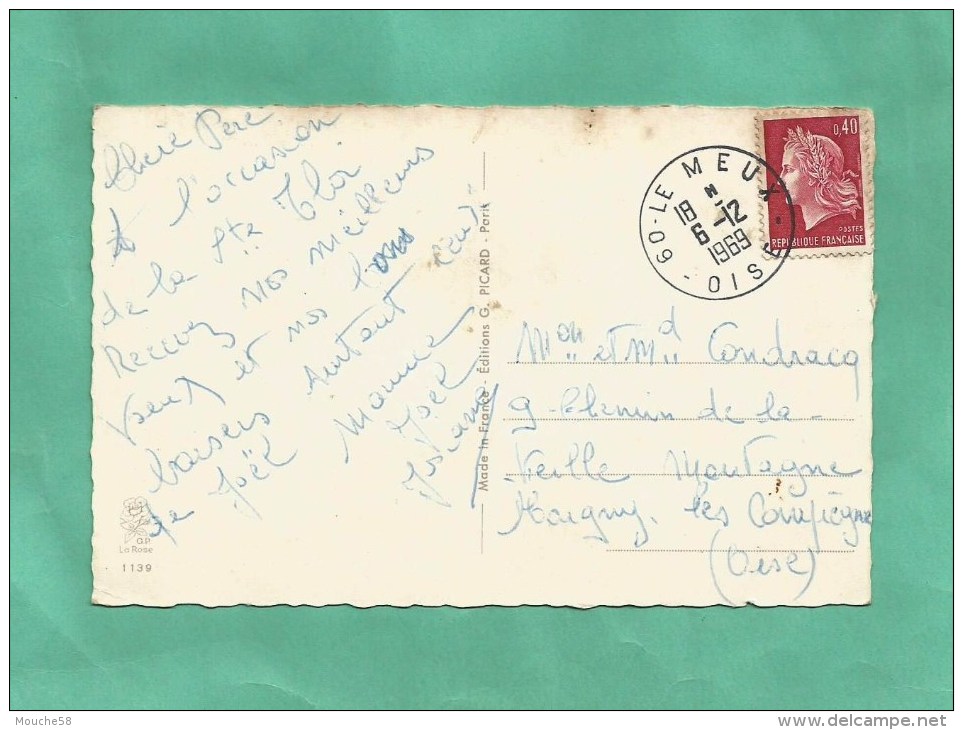 Cheré Pere
A l'occasion
de la Ste Eloi
Recevez nos meilleurs
voeux et nos bons
baisers Autant
de Joël
Maurice
Joël
Josiane
La Rose
1139
Made in France - Éditions G. PICARD - Paris
60 - LE MEUX
18 H
6 - 12
1969
OISE
0,40
POSTES
REPUBLIQUE FRANÇAISE
Mon et Md Condracq
9 Chemin de la
Vieille Montagne
Margny les Compiègne
(Oise)
Mouche58
www.delcampe.net